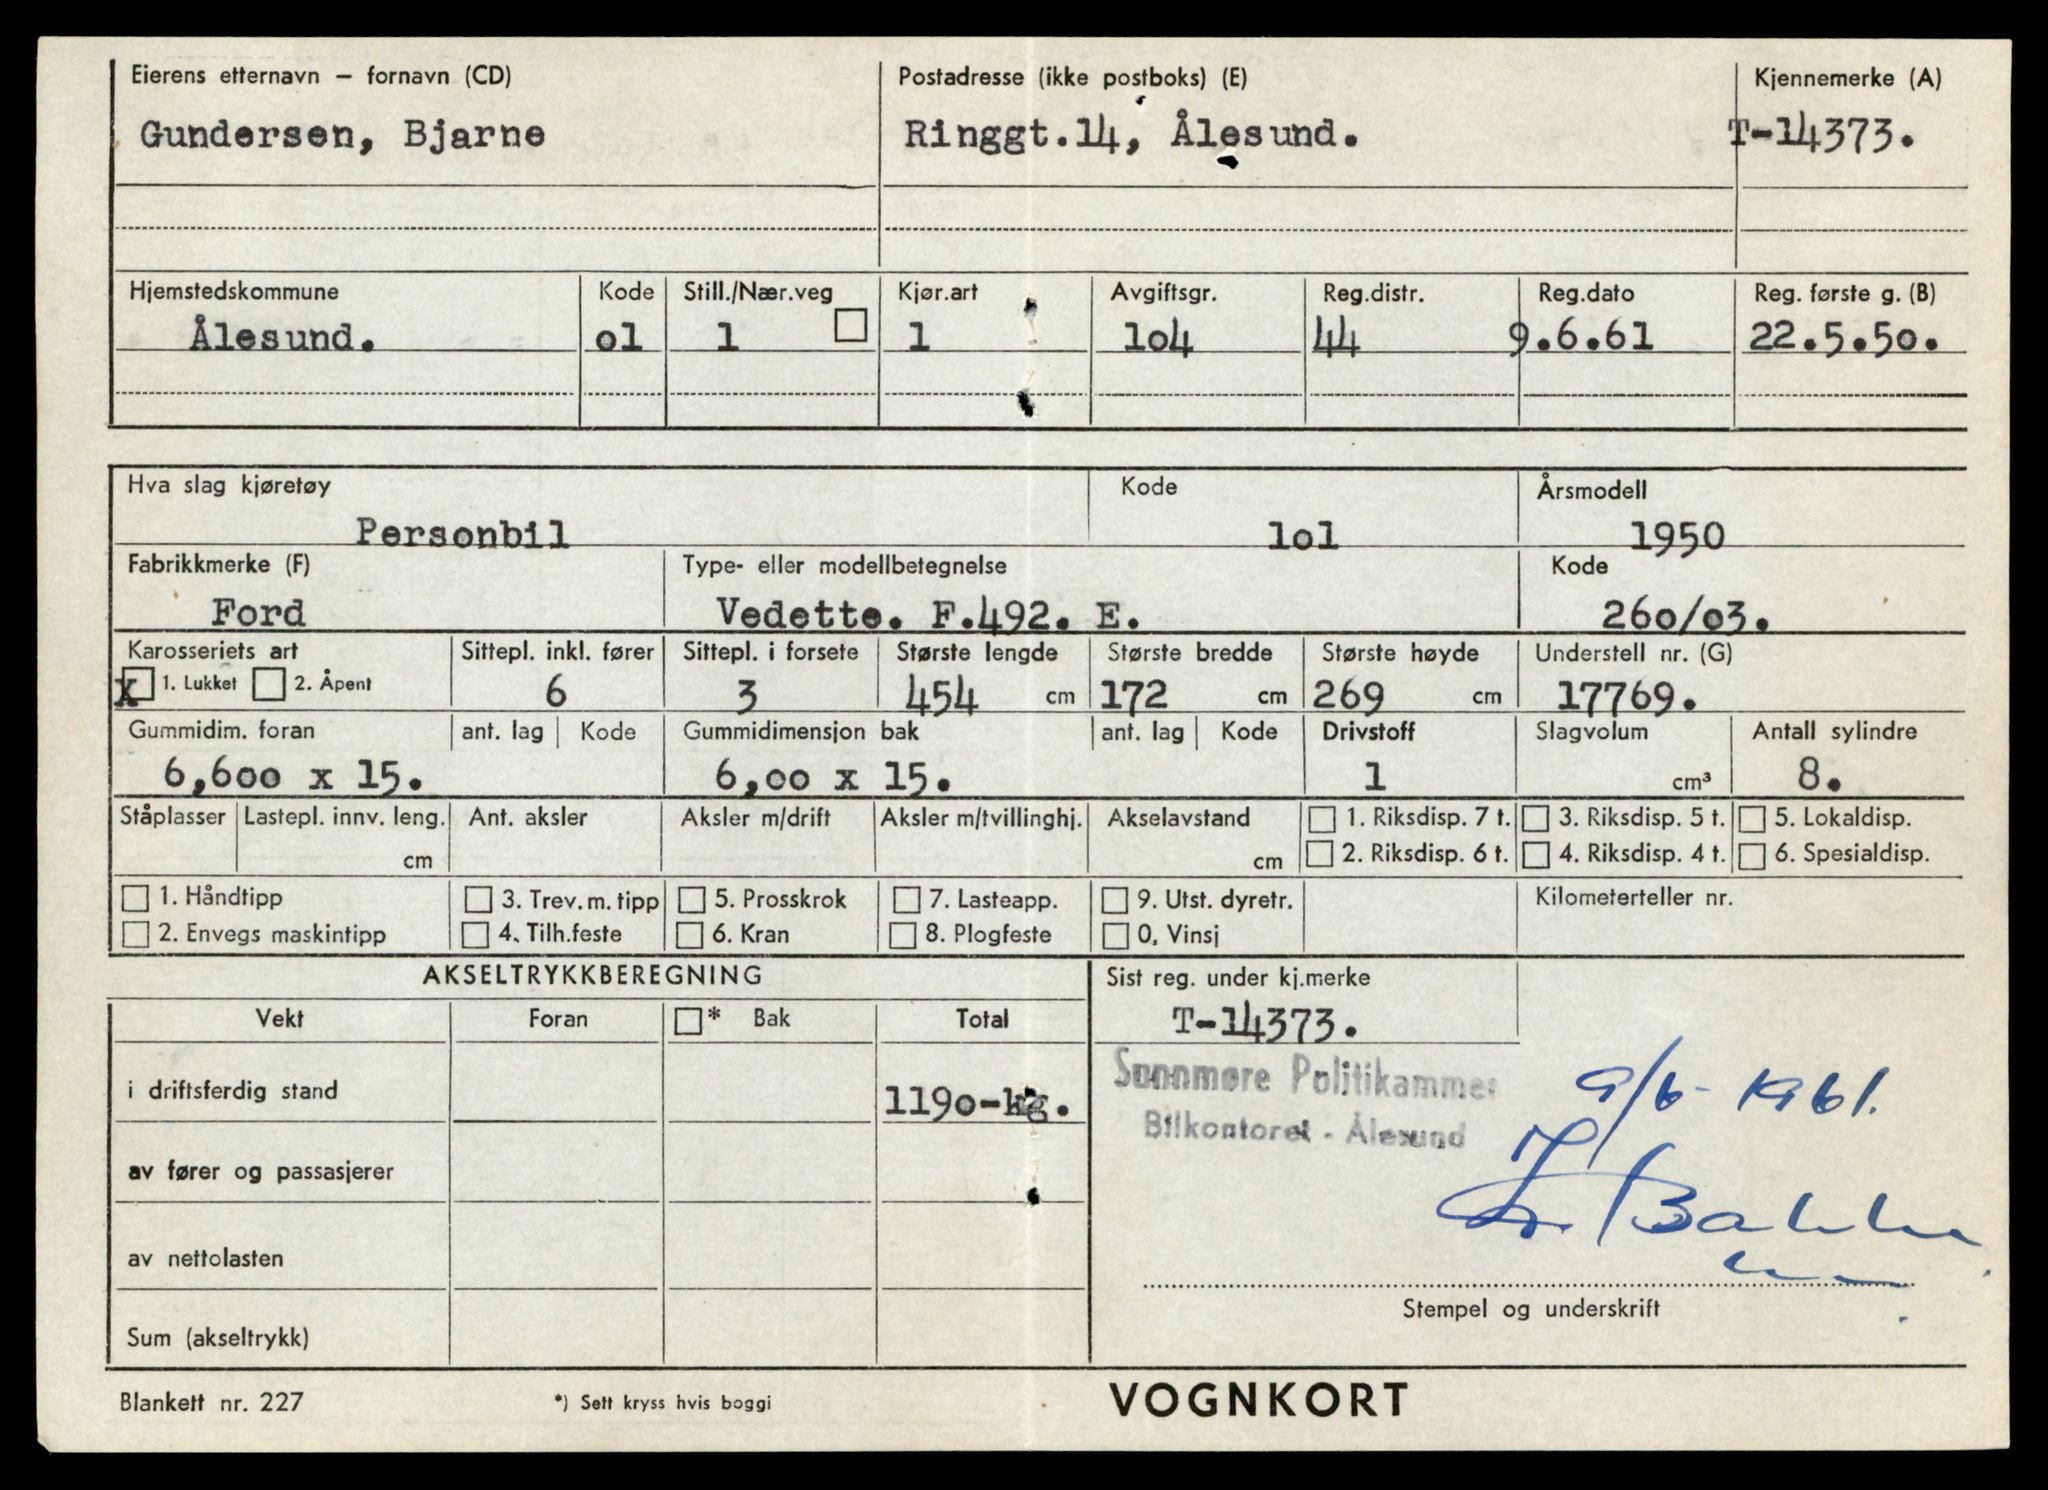 Eierens etternavn – fornavn (CD) Postadresse (ikke postboks) (E) Kjennemerke (A)
Gundersen, Bjarne Ringgt.14, Ålesund. T-14373.
Hjemstedskommune Kode Still./Nær.veg Kjør.art Avgiftsgr. Reg.distr. Reg.dato Reg. første g. (B)
Ålesund. o1 1 1 1o4 44 9.6.61 22.5.5o.
Hva slag kjøretøy Kode Årsmodell
Personbil 1o1 1950
Fabrikkmerke (F) Type- eller modellbetegnelse Kode
Ford Vedette. F.492. E. 26o/o3.
Karosseriets art Sittepl. inkl. fører Sittepl. i forsete Største lengde Største bredde Største høyde Understell nr. (G)
x 1. Lukket 2. Åpent 6 3 454 cm 172 cm 269 cm 17769.
Gummidim. foran ant. lag Kode Gummidimensjon bak ant. lag Kode Drivstoff Slagvolum Antall sylindre
6,6oo x 15. 6,oo x 15. 1 cm³ 8.
Ståplasser Lastepl. innv. leng. Ant. aksler Aksler m/drift Aksler m/tvillinghj. Akselavstand 1. Riksdisp. 7 t. 3. Riksdisp. 5 t. 5. Lokaldisp.
cm cm 2. Riksdisp. 6 t. 4. Riksdisp. 4 t. 6. Spesialdisp.
1. Håndtipp 3. Trev. m. tipp 5. Prosskrok 7. Lasteapp. 9. Utst. dyretr. Kilometerteller nr.
2. Envegs maskintipp 4. Tilh.feste 6. Kran 8. Plogfeste 0. Vinsj
AKSELTRYKKBEREGNING Sist reg. under kj.merke
Vekt Foran * Bak Total T-14373.
i driftsferdig stand 119o-kg.
Sunnmøre Politikammer
Bilkontoret - Ålesund
9/6- 1961.
Bakke
av fører og passasjerer
av nettolasten
Stempel og underskrift
Sum (akseltrykk)
Blankett nr. 227 *) Sett kryss hvis boggi VOGNKORT